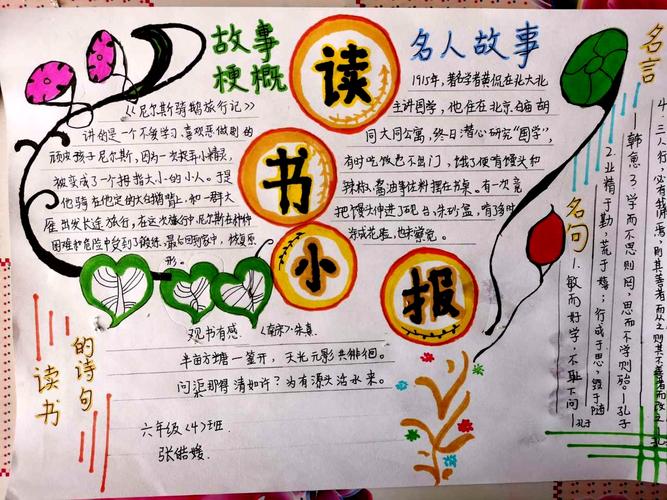 故事
梗概
读
书
小
报
《尼尔斯骑鹅旅行记》
讲的是一个不爱学习、喜欢恶做剧的
顽皮孩子尼尔斯,因为一次捉弄小精灵,
被变成了一个拇指大小的小人。于是
他骑在他家的大白鹅背上,和一群大
雁出发长途旅行,在这次旅行中,尼尔斯在种种
困难和危险中受到了锻练,最后回到家中,恢复原
形。
名人故事
1915年,著名学者黄侃在北大
主讲国学,他住在北京白庙胡
同大同公寓,终日潜心研究“国学”,
有时吃饭也不出门,饿了便有馒头和
辣椒、酱油等佐料摆在书桌。有一次竟
把馒头伸进了砚台、朱砂盒,
涂成花脸,也未察觉。
名言
名句
1、敏而好学,不耻下问——孔子
2、业精于勤,荒于嬉;行成于思,毁于随
——韩愈
3、学而不思则罔,思而不学则殆。——孔子
4、三人行,必有我师焉,则其善者而从之,则其不善者而改之
读书
的诗句
观书有感 (南宋)·朱熹
半亩方塘一鉴开,天光云影共徘徊。
问渠那得清如许?为有源头活水来。
六年级〈4〉班
张皓媛